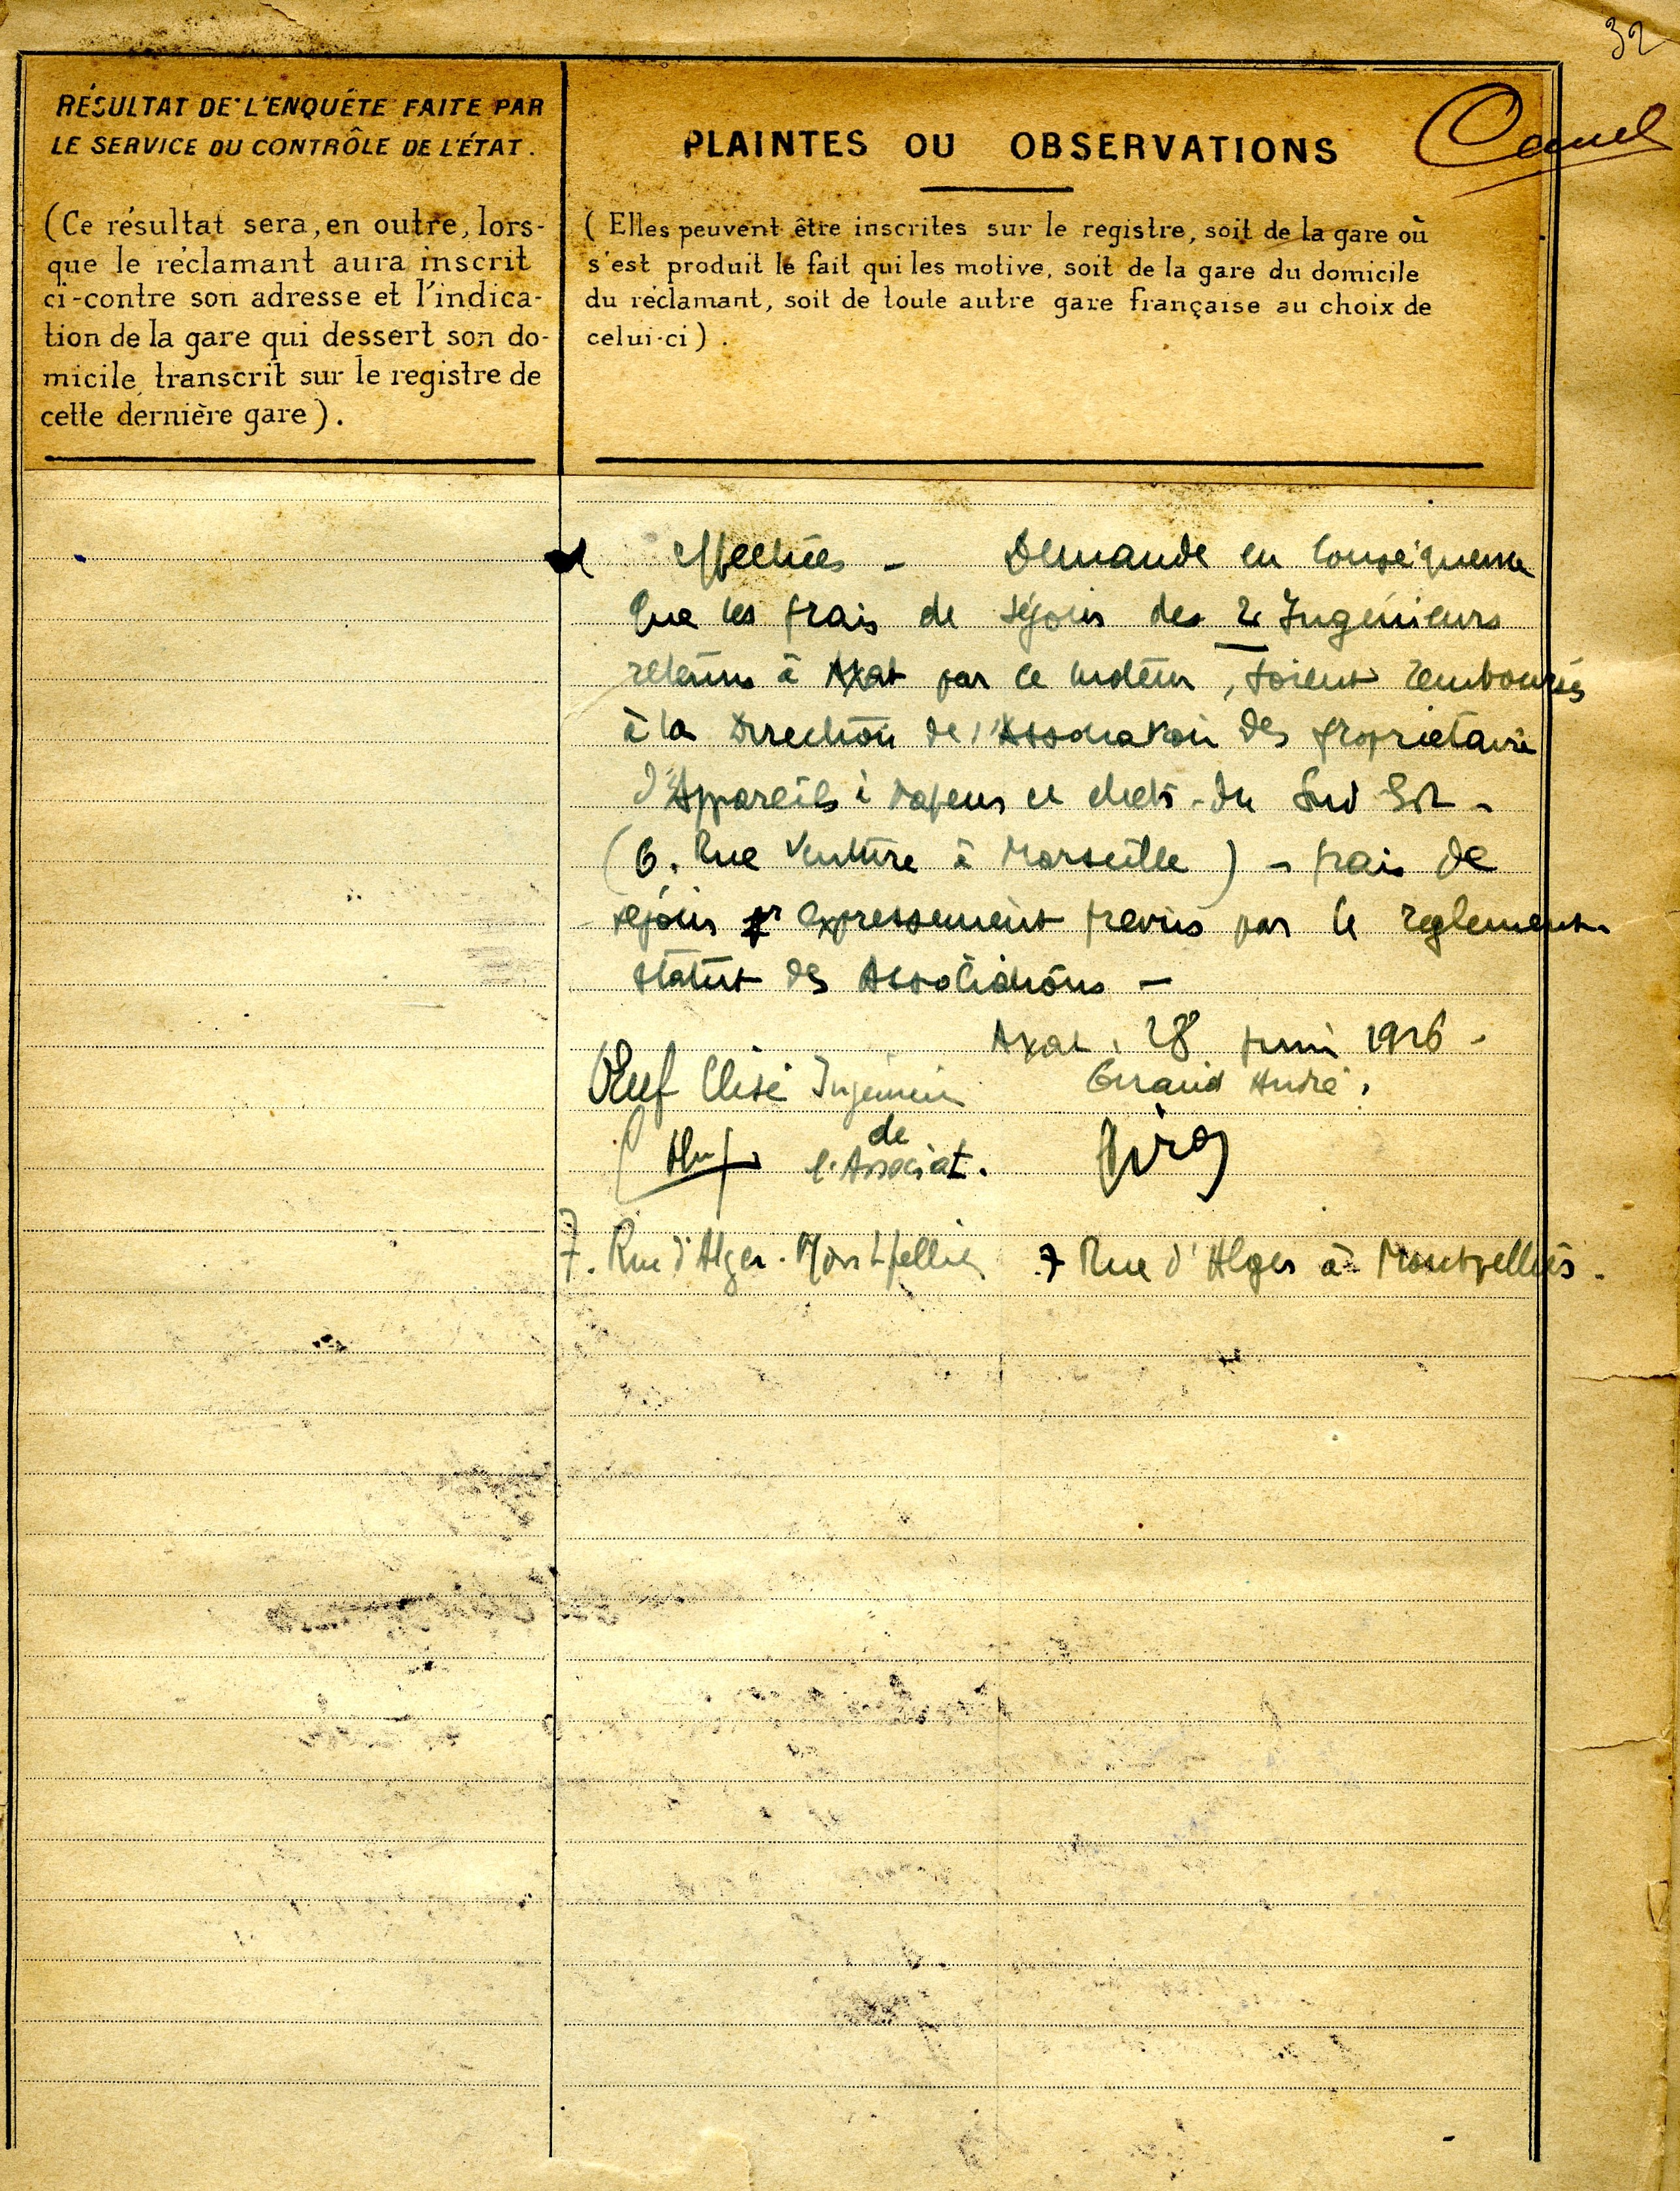 32
RÉSULTAT DE L'ENQUÊTE FAITE PAR
LE SERVICE DU CONTRÔLE DE L'ÉTAT.
(Ce résultat sera, en outre, lors-
que le réclamant aura inscrit
ci-contre son adresse et l'indica-
tion de la gare qui dessert son do-
micile, transcrit sur le registre de
cette dernière gare).
PLAINTES OU OBSERVATIONS
(Elles peuvent être inscrites sur le registre, soit de la gare où
s'est produit le fait qui les motive, soit de la gare du domicile
du réclamant, soit de toute autre gare française au choix de
celui-ci).
effectuées - Demande en conséquence
que les frais de séjour des 2 Ingénieurs
retenus à Axat par ce , soient remboursés
à la Direction de l'Association des propriétaires
d'Appareils à vapeur et élect. du Sud Est -
(6. Rue Venture à Marseille) - frais de
séjour expressement prévus par le reglement
statut des Associations -
Axat, 28 juin 1926 -
Elisé Ingénieur
de
l'Associat.
Giraud André.
7. Rue d'Alger. Montpellier
7 Rue d'Alger à Montpellier.